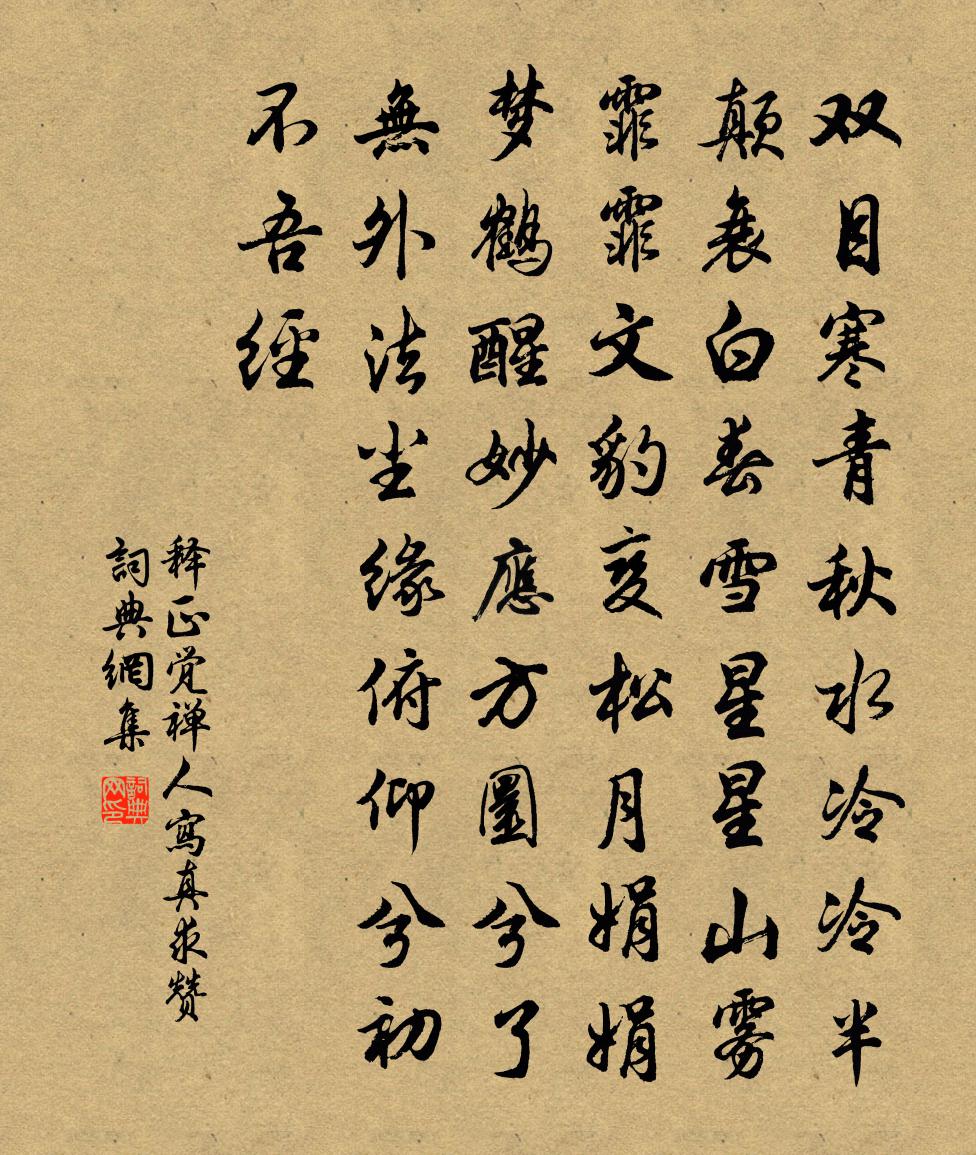 双目寒青秋水冷冷半
颠衰白春雪星星山雾
霏霏文豹变松月娟娟
梦鹤醒妙應方圓兮了
無外法尘缘俯仰兮初
不吾經
释正觉禅人寫真求赞
詞典網集
詞典網印